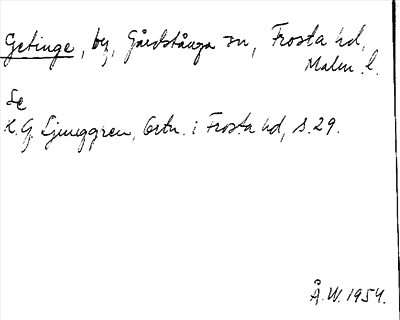 Getinge, by, Gårdstånga sn, Frosta hd,
Malm. l.
Se
K. G. Ljunggren, Ortn. i Frosta hd, s. 29.
Å. W. 1954.